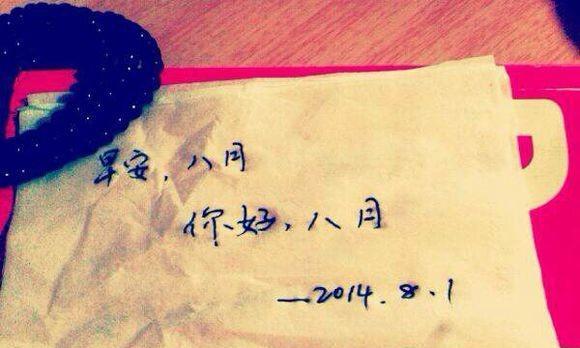 早安，八月
你好，八月
—2014.8.1